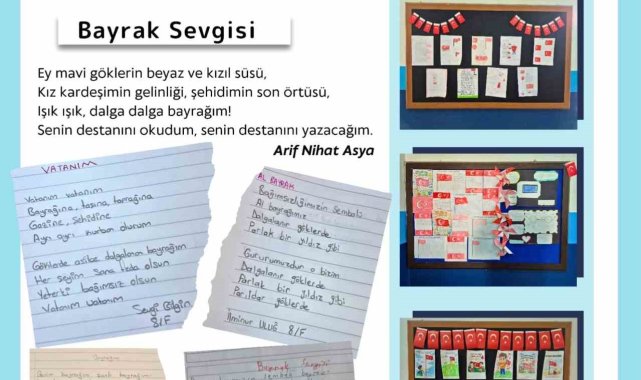 Bayrak Sevgisi
Ey mavi göklerin beyaz ve kızıl süsü,
Kız kardeşimin gelinliği, şehidimin son örtüsü,
Işık ışık, dalga dalga bayrağım!
Senin destanını okudum, senin destanını yazacağım.
Arif Nihat Asya
VATANIM
Vatanım vatanım
Bayrağına, taşına, toprağına
Gazine, şehidine
Ayrı ayrı kurban olurum
Göklerde asilce dalgalanan bayrağım
Her şeyim sana feda olsun
Yeterki bağımsız olsun
Vatanım vatanım
Sevgi Bilgin
8/F
AL BAYRAK
Bağımsızlığımızın Sembolü
Al bayrağımız
Dalgalanır göklerde
Parlak bir yıldız gibi
Gururumuzdur o bizim
Dalgalanır göklerde
Parlak bir yıldız gibi
Parıldar göklerde
8/F
Bayrak Sevgisi